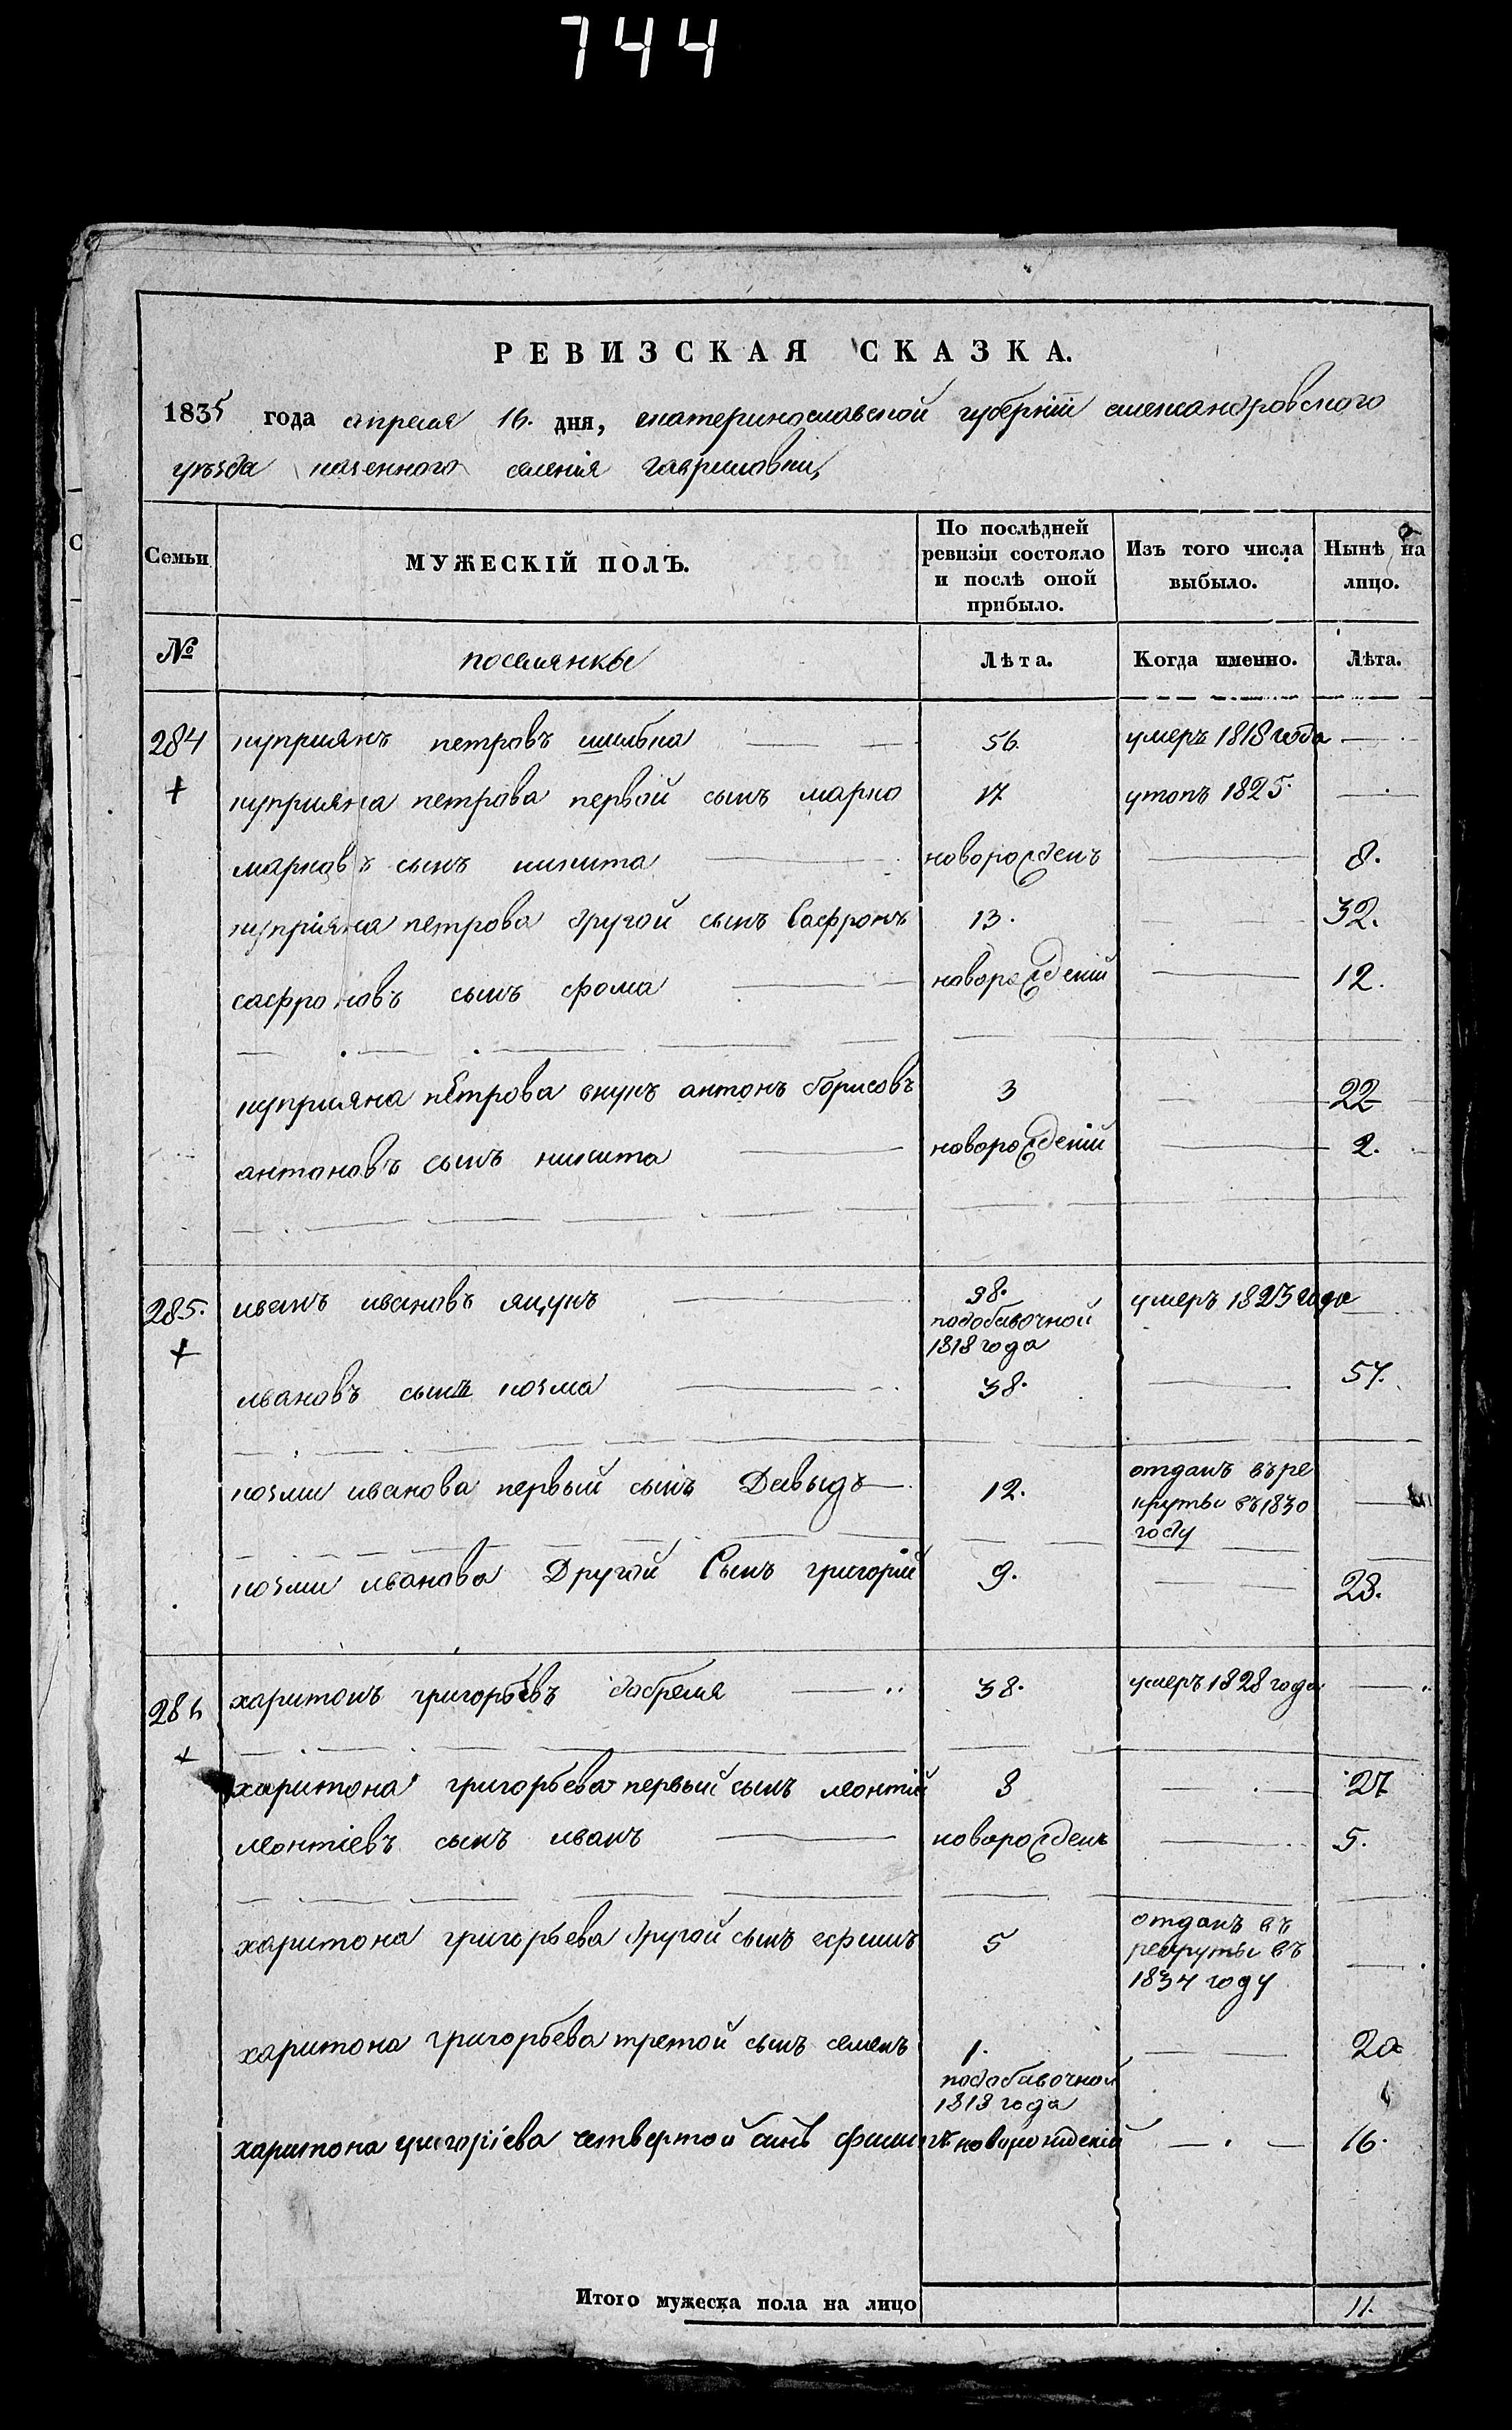 744
РЕВИЗСКАЯ СКАЗКА.
1835 года апреля 16. дня, екатеринославской губернїи александровского
уѣзда казенного селенїя гавриловки,
Семьи
МУЖЕСКІЙ ПОЛЪ.
По послѣдней ревизіи состояло и послѣ оной прибыло.
Изъ того числа выбыло.
Нынѣ на лицо.
№
поселянѣ
Лѣта.
Когда именно.
Лѣта.
284 куприянъ петровъ 56. умеръ 1818 года
+ куприяна петрова первой сынъ марко 17 утопъ 1825.
марковъ сынъ никита новорожденъ 8.
купріяна петрова другой сынъ Сафронъ 13. 32.
сафроновъ сынъ фома новорожденій 12.
куприяна петрова внукъ антонъ борисовъ 3 22
антоновъ сынъ никита новорожденій 2.
285. иванъ ивановъ яцунъ 98. умеръ 1823 года
подобавочной
1818 года
+
ивановъ сынъ козма 38. 57.
козми иванова первый сынъ Давыдъ 12. отданъ въ ре
круты въ 1830
году
козми иванова Другой Сынъ григорій 9. 28.
286 харитонъ григорьевъ 38. умеръ 1828 года
+
харитона григорьева первый сынъ леонтій 8 27
леонтіевъ сынъ иванъ новорожденъ 5.
харитона григорьева другой сынъ 5 отданъ въ
рекруты въ
1834 году
харитона григорьева третой сынъ семенъ 1. 20
подобавочной
1818 года
харитона григоріева четвертой синъ новорожденій 16.
Итого мужеска пола на лицо 11.